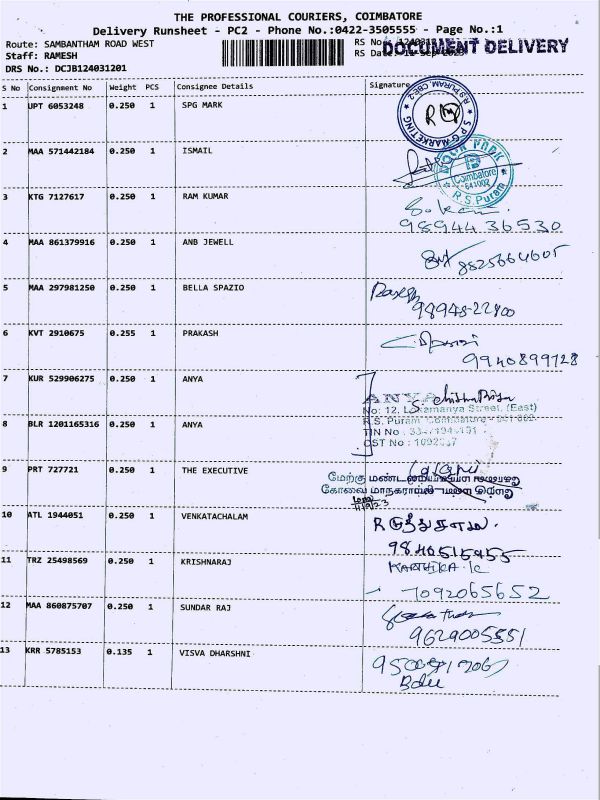 THE PROFESSIONAL COURIERS, COIMBATORE
Delivery Runsheet - PC2 - Phone No.:0422-3505555 - Page No.:1
Route: SAMBANTHAM ROAD WEST
Staff: RAMESH
DRS No.: DCJB124031201
RS No
DOCUMENT DELIVERY
RS Date
S No Consignment No Weight PCS Consignee Details Signature
1 UPT 6053248 0.250 1 SPG MARK
S.P.G MARKETING R.S.PURAM, CBE-2
2 MAA 571442184 0.250 1 ISMAIL
Coimbatore
641002
R.S.Puram
3 KTG 7127617 0.250 1 RAM KUMAR
98944 36530
4 MAA 861379916 0.250 1 ANB JEWELL
8825664605
5 MAA 297981250 0.250 1 BELLA SPAZIO
6 KVT 2910675 0.255 1 PRAKASH
9940899728
7 KUR 529906275 0.250 1 ANYA
ANYA
No: 12, Lokamanya Street, (East)
R.S. Puram
TIN No
8 BLR 1201165316 0.250 1 ANYA
CST No
9 PRT 727721 0.250 1 THE EXECUTIVE
மேற்கு
கோவை
10 ATL 1944051 0.250 1 VENKATACHALAM
11 TRZ 25498569 0.250 1 KRISHNARAJ
KARTHIKA.K
7092065652
12 MAA 860875707 0.250 1 SUNDAR RAJ
9629005551
13 KRR 5785153 0.135 1 VISVA DHARSHNI